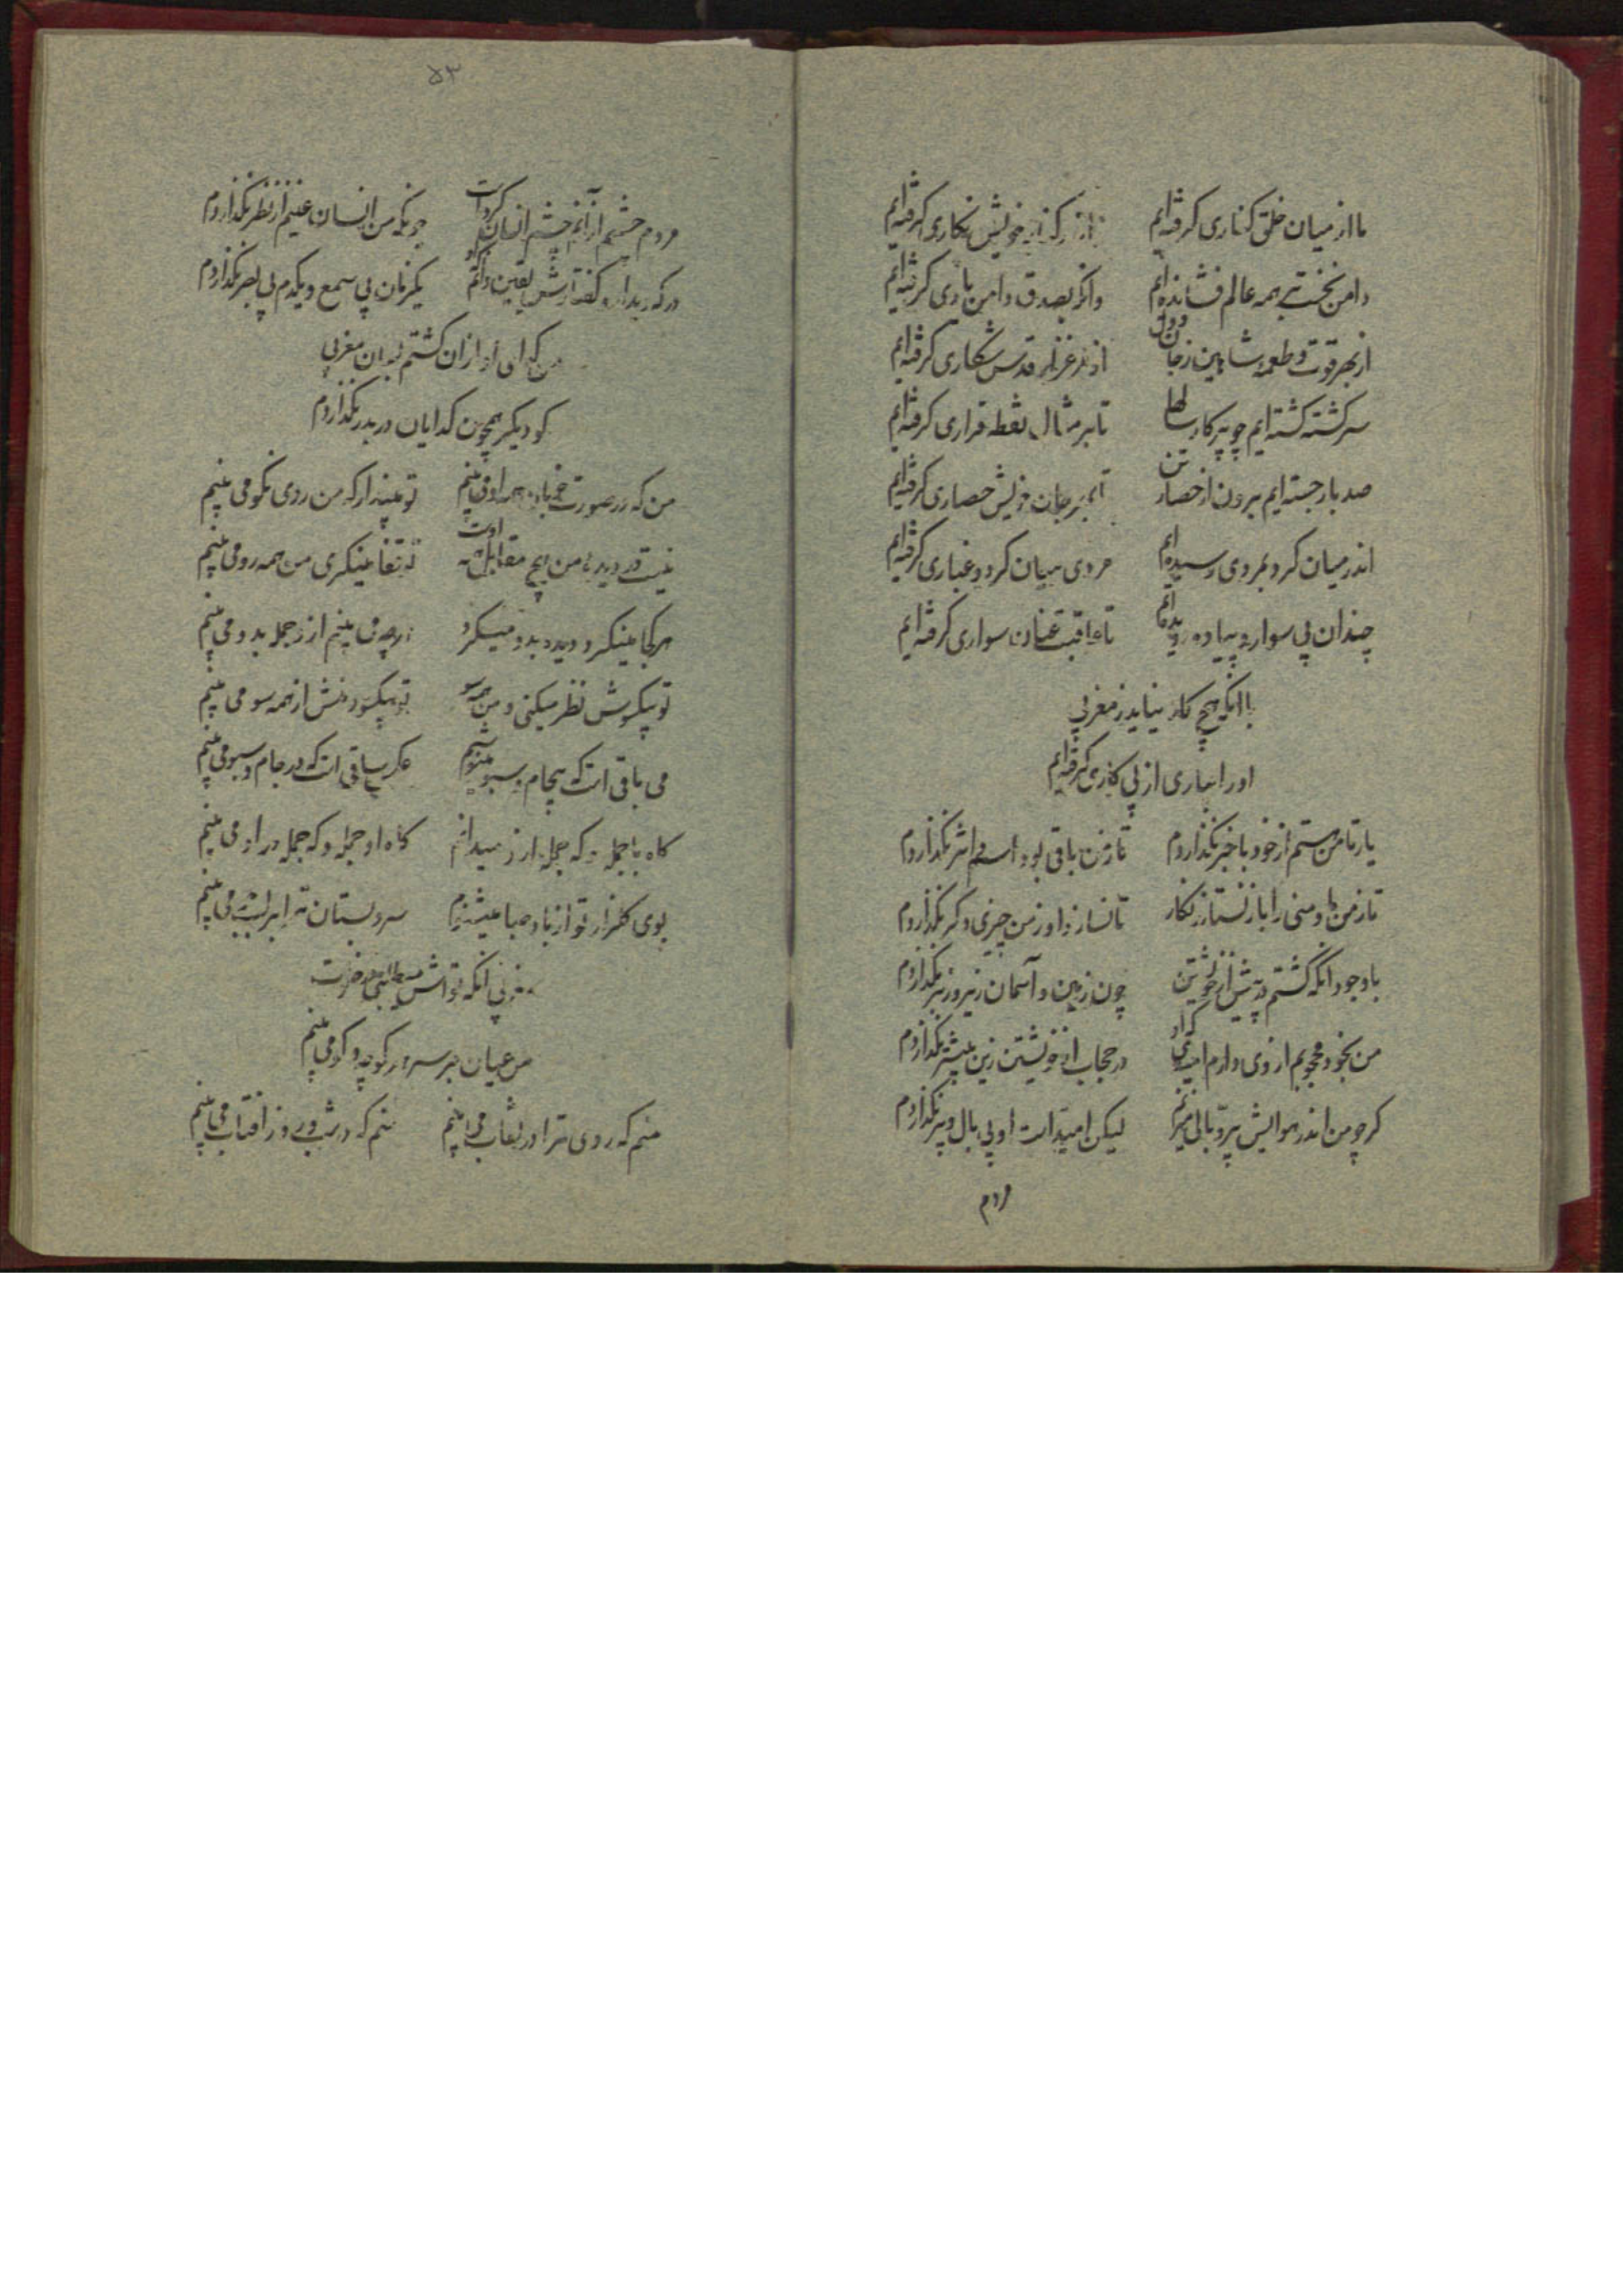 ما از میان خلق کناری کرفته‌ایم واندر کنار خویش نکاری کرفته‌ایم
دامن نخست بر همه عالم فشانده‌ایم وانکه بصدق دامن یاری کرفته‌ایم
از بهر قوت و طعمه شاهین زجان و دل از مرغزار قدس شکاری کرفته‌ایم
سرکشته کشته‌ایم چو پرکار سالها تا بر مثال نقطه قراری کرفته‌ایم
صد بار جسته‌ایم برون از حصار تن تا بهر جان خویش حصاری کرفته‌ایم
اندر میان کرد بمردی رسیده‌ایم مردی میان کرد و غباری کرفته‌ایم
چندان پی سواره پیاده دویده‌ایم تا عاقبت عنان سواری کرفته‌ایم
با آنکه هیچ کار نیاید ز مغربی
او را بیاری از پی کاری کرفته‌ایم
یار تا من هستم از خود با خبر نکذاردم تا ز من باقی بود اسم و اثر نکذاردم
تا ز من ما و منی را باز نستاند نکار تا نسازد او ز من چیزی دکر نکذاردم
با وجود آنکه کشتم نیست از خویشتن چون زمین و آسمان زیر و زبر نکذاردم
من بخود محجوبم از وی دارم امیدی که او در حجاب از خویشتن زین بیشتر نکذاردم
کرچه من اندر هوایش پر و بالی میزنم لیکن امید است او بی بال و پر نکذاردم
مردم
۵۳
مردم چشمم از آنم چشم انسان کرد است چونکه من انسان عینم از نظر نکذاردم
در که دیدار و کفتارش یقین دانم که او یکزمان بی سمع و یکدم بی بصر نکذاردم
من کدای او از آن کشتم که آن مغربی
کو دیکر همچون کدایان در بدر نکذاردم
من که در صورت خوبان همه او می بینم تو مپندار که من روی نکو می بینم
نیست در دیده من هیچ مقابل همه اوست تو قفا مینکری من همه رو می بینم
هر کجا مینکرد دیده بدو مینکرد هرچه می بینم از او جمله بدو می بینم
تو بیکسوش نظر میکنی و من همه سو تو بیکسو و منش از همه سو می بینم
می باقی است که بیجام و سبو مینوشم عکس ساقی است که در جام و سبو می بینم
کاه با جمله و که جمله از او میدانم کاه او جمله و که جمله در او می بینم
بوی کلزار تو از باد صبا میشنوم سرو بستان ترا بر لب جو می بینم
مغربی آنکه تواش میطلبی در خلوت
من عیان بر سر هر کوچه و کو می بینم
منم که روی ترا در نقاب می بینم منم که در شب و روز آفتاب می بینم